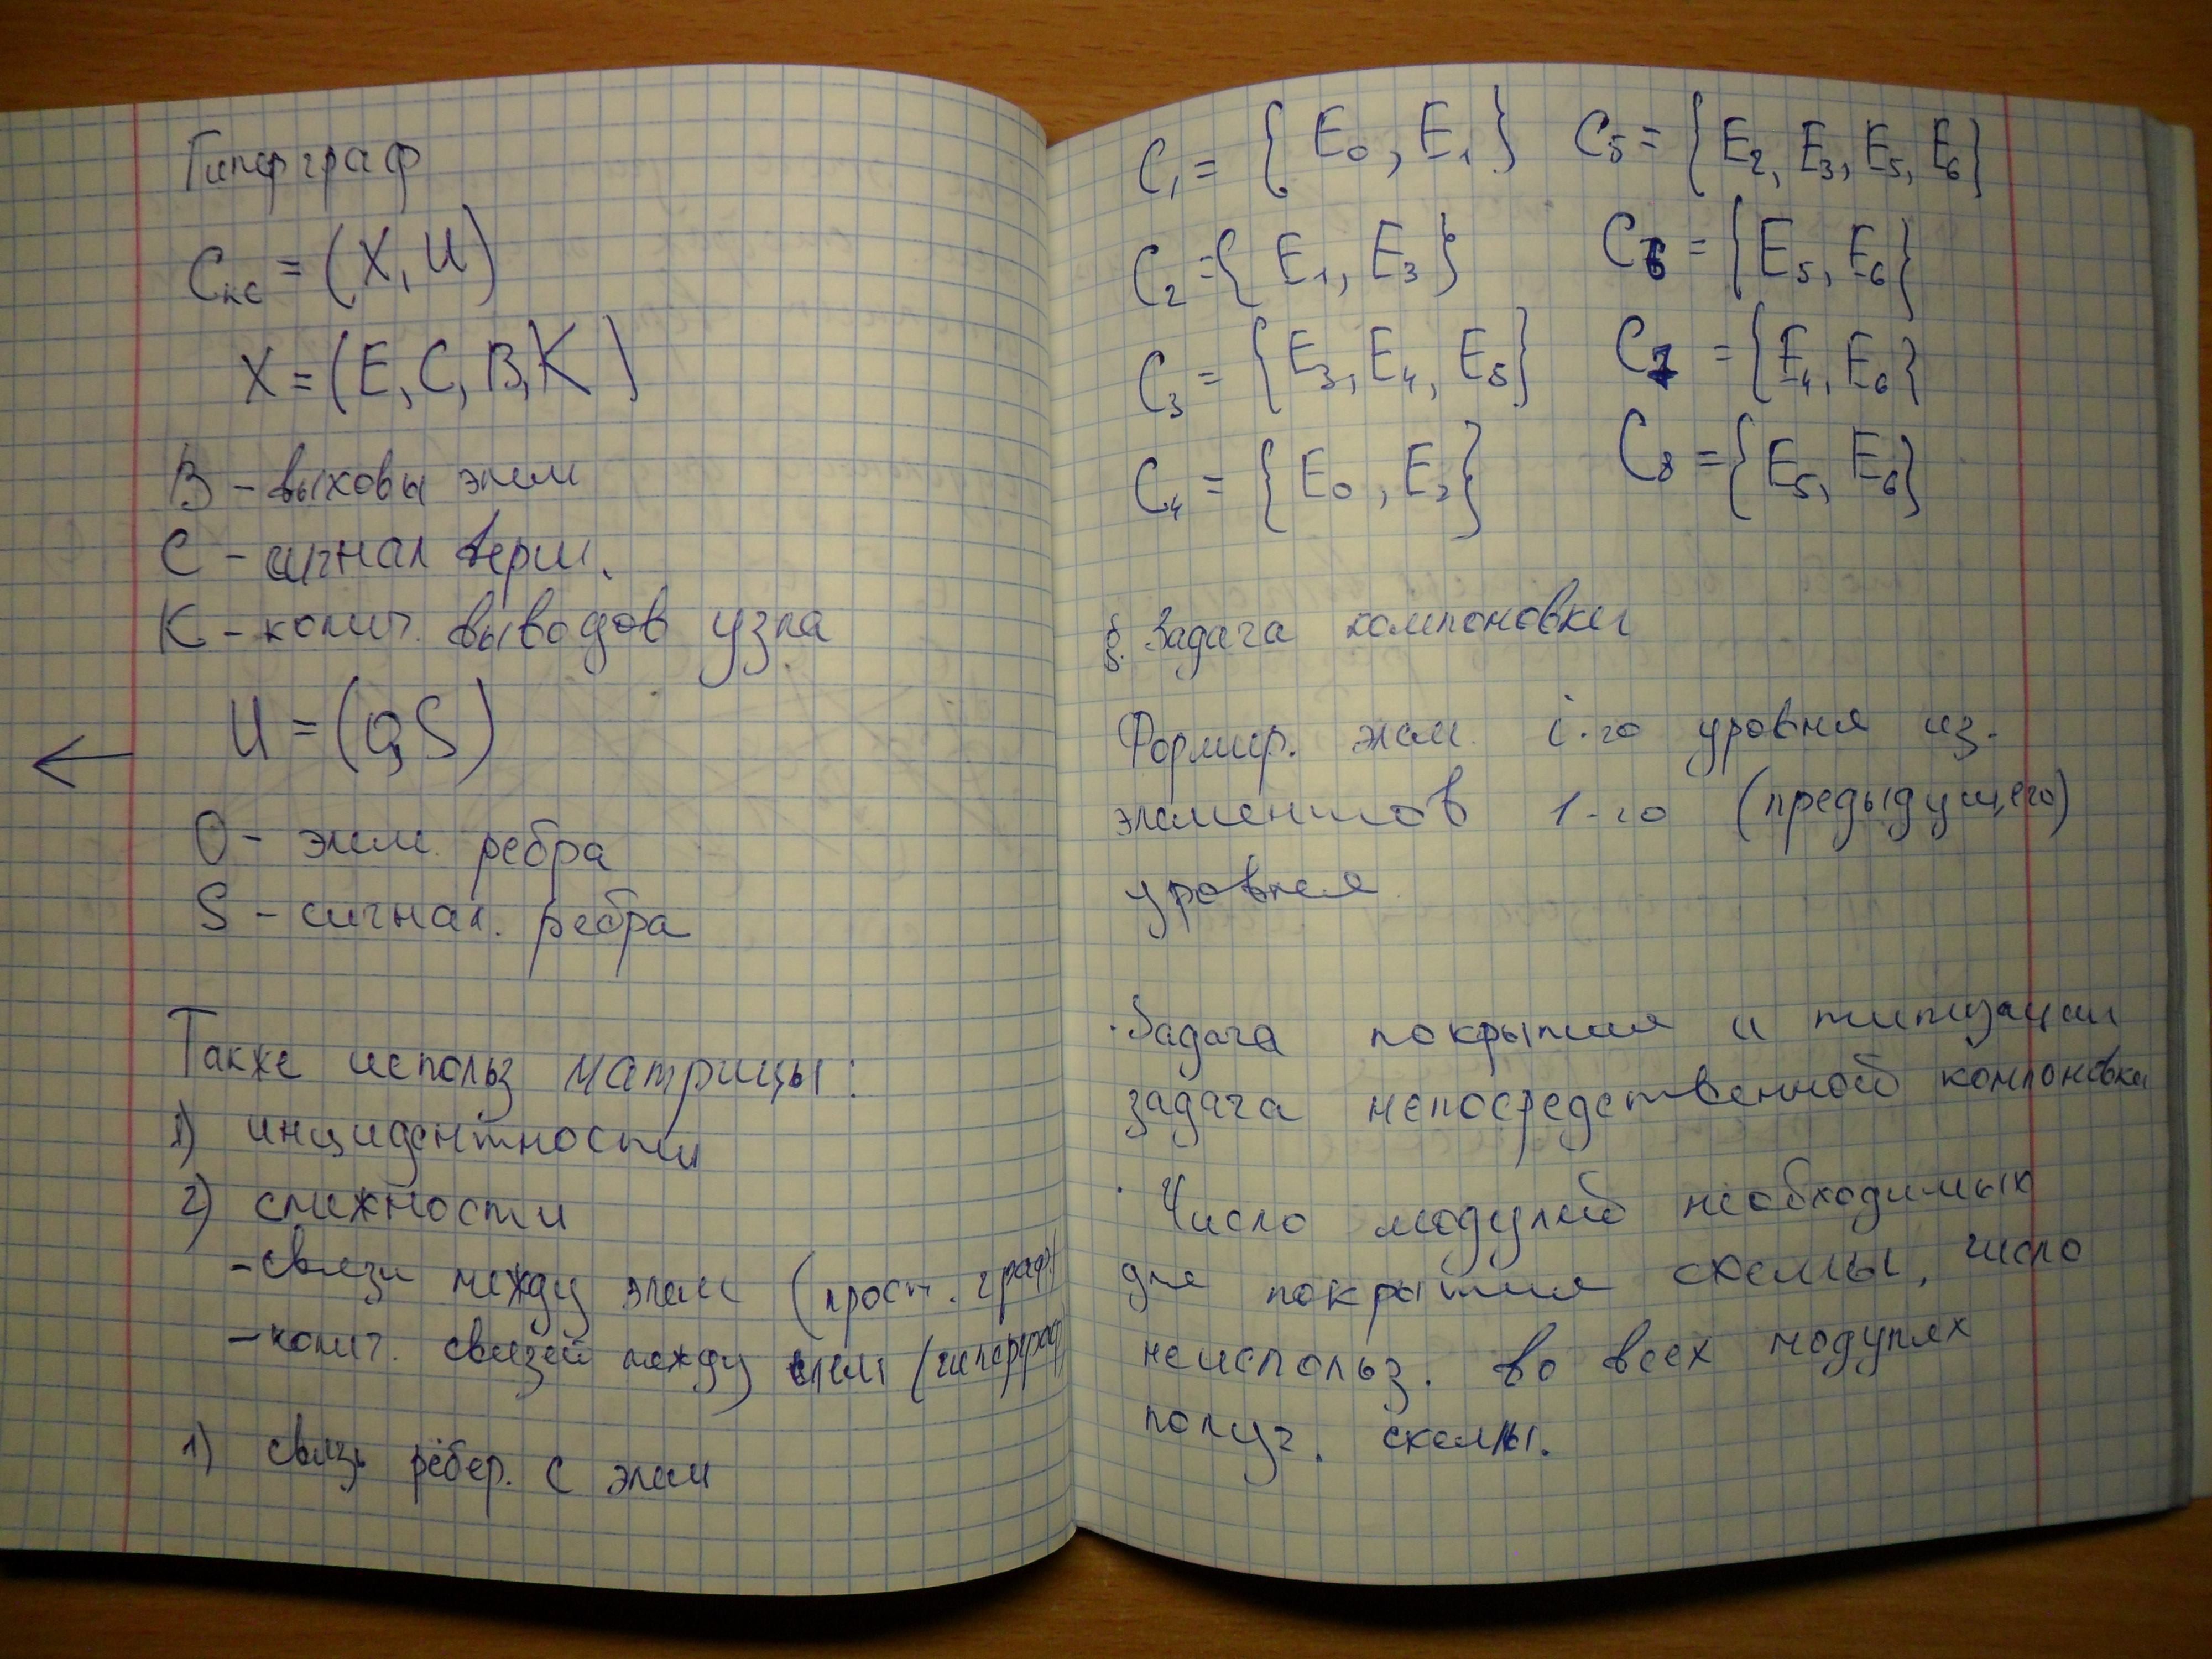 Гиперграф
Cкс = (X, U)
X = (E, C, B, K)
B - выховы элем
C - сигнал верш.
K - колич. выводов узла
U = (O, S)
O - элем. ребра
S - сигнал. ребра
Также использ матрицы:
1) инцидентности
2) смежности
- связи между элем (прост. граф)
- колич. связей между элем (гиперграф)
1) связь рёбер. с элем
C₁ = {E₀, E₁} C₅ = {E₂, E₃, E₅, E₆}
C₂ = {E₁, E₃} C₆ = {E₅, E₆}
C₃ = {E₃, E₄, E₅} C₇ = {E₄, E₆}
C₄ = {E₀, E₂} C₈ = {E₅, E₆}
§. Задача компоновки
Формир. элем. i-го уровня из.
элементов 1-го (предыдущего)
уровня
· Задача покрытия и типизации
задача непосредственной компоновки
· Число модулей необходимых
для покрытия схемы, число
неиспольз. во всех модулях
получ. схемы.